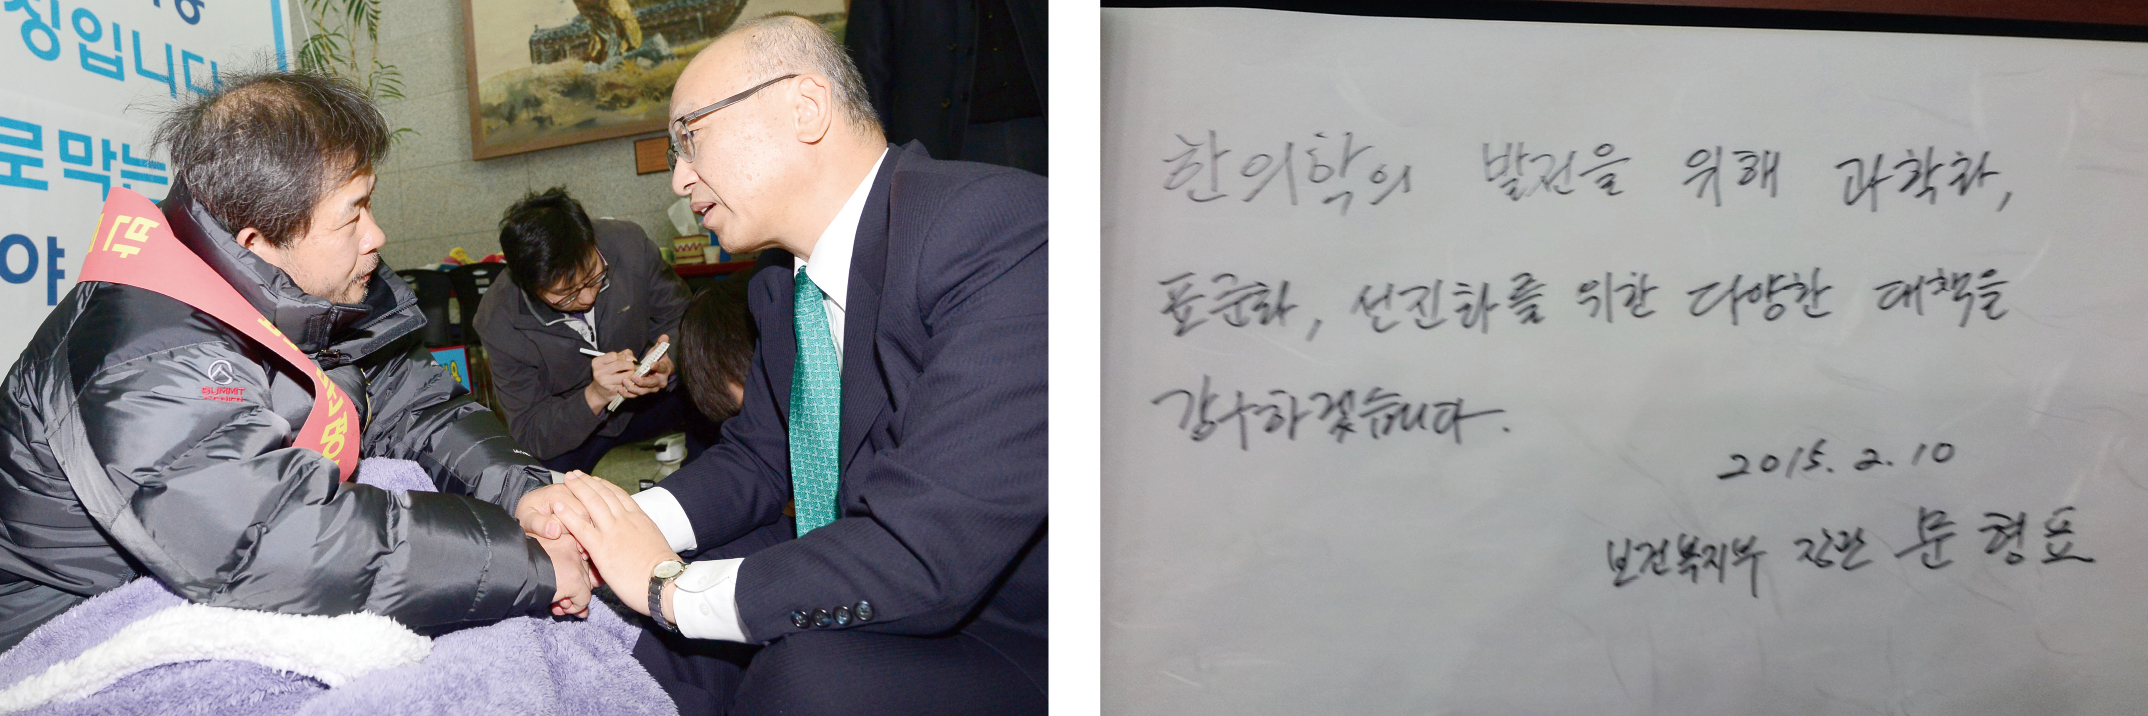 징입니다
로막는
야
단
SUMMIT
한의학의 발전을 위해 과학화,
표준화, 선진화를 위한 다양한 대책을
강구하겠습니다.
2015. 2. 10
보건복지부 장관 문형표